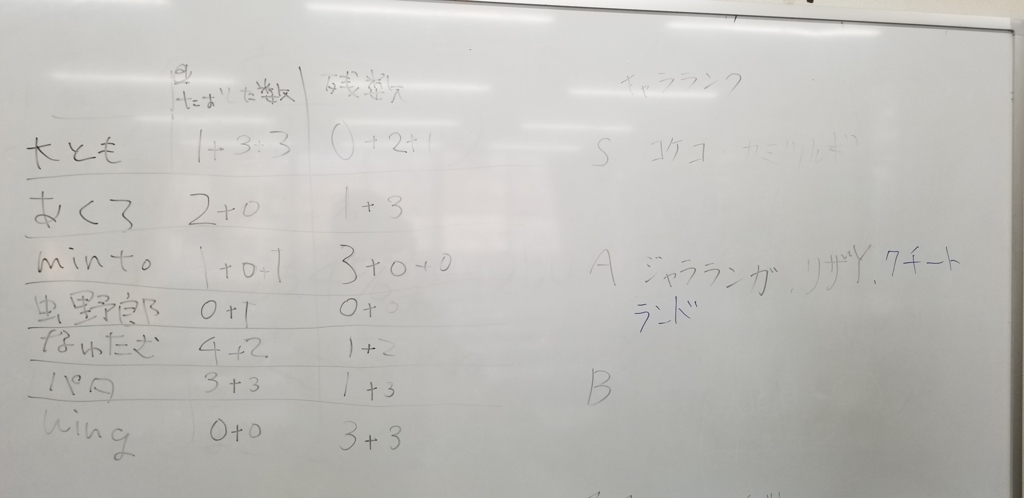 たおした数 残数
大とも 1+3+3 0+2+1
おくろ 2+0 1+3
minto 1+0+1 3+0+0
虫野郎 0+1 0+0
なわたむ 4+2 1+2
パロ 3+3 1+3
wing 0+0 3+3
キャラランク
S コケコ・カミツルギ
A ジャラランガ.リザY.クチート
ランド
B